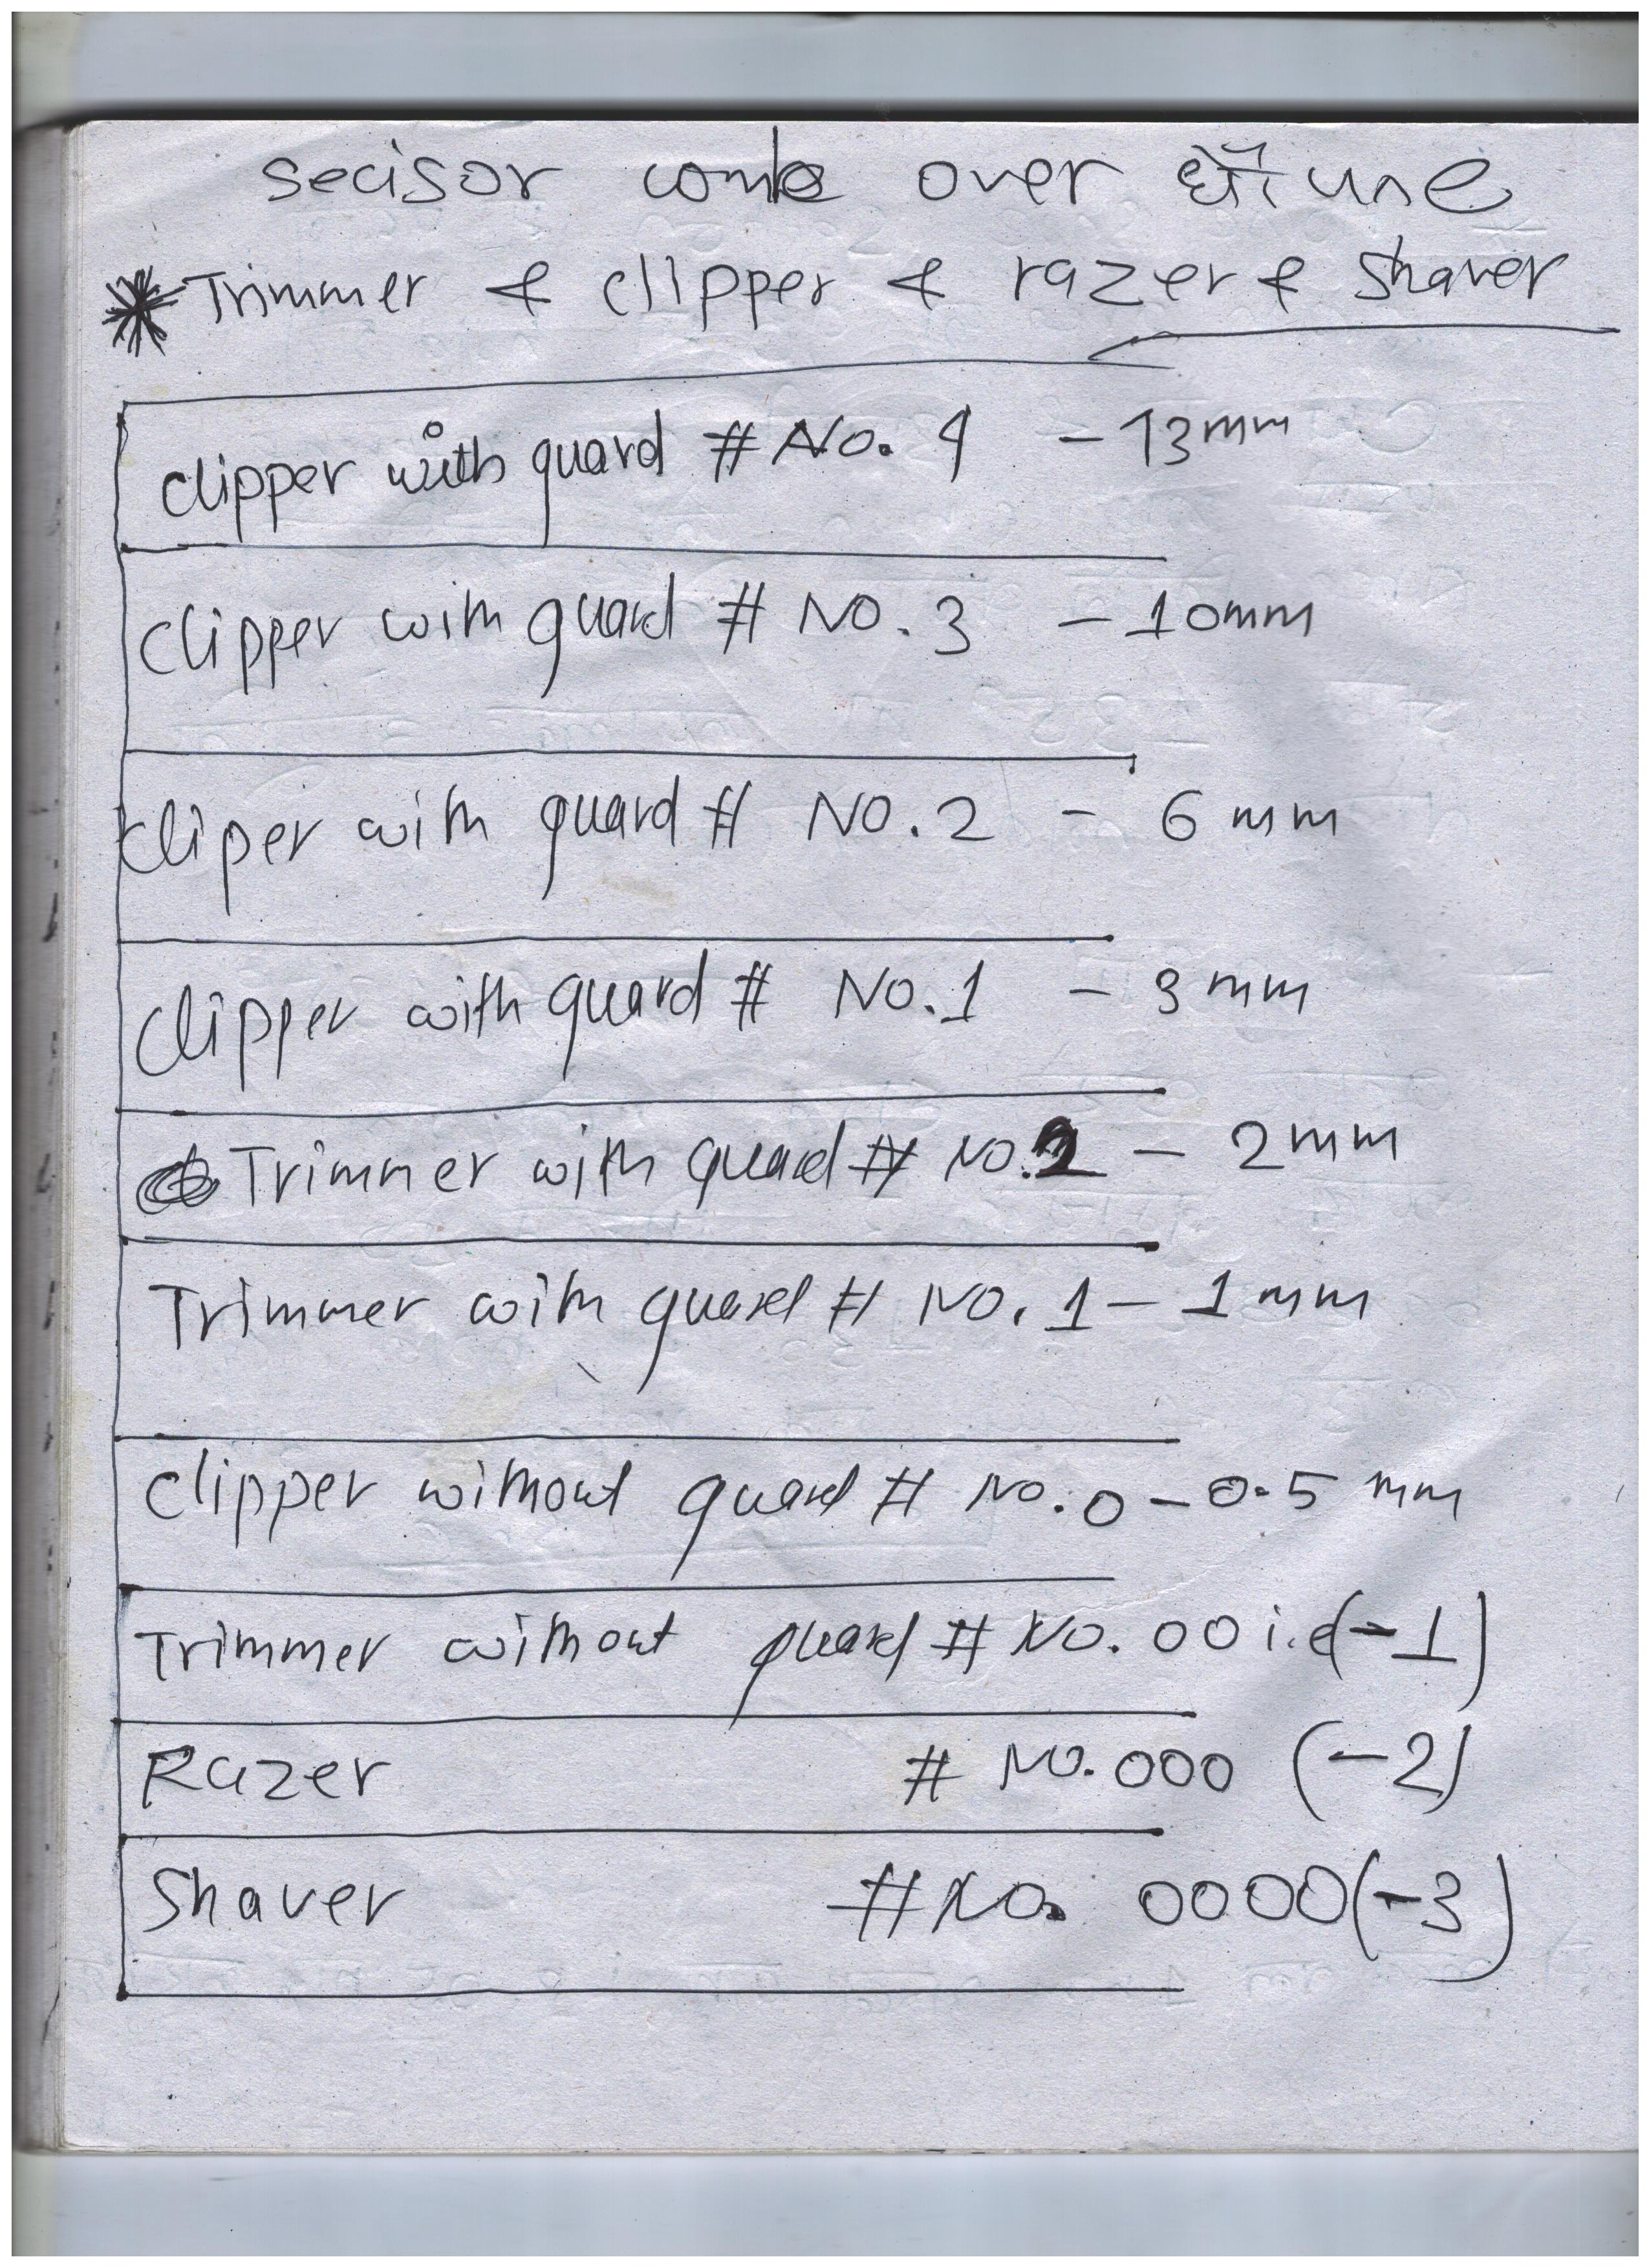 secisor comb over use
* Trimmer & clipper & razer & Shaver
clipper with guard # No. 4 - 13mm
clipper with guard # NO. 3 - 10mm
cliper with guard # NO. 2 - 6 mm
clipper with guard # No. 1 - 3 mm
Trimmer with guard # NO. 2 - 2mm
Trimmer with guard # NO. 1 - 1 mm
clipper without guard # NO. 0 - 0.5 mm
Trimmer without guard # NO. 00 i.e (-1)
Razer # NO. 000 (-2)
Shaver # No. 0000 (-3)